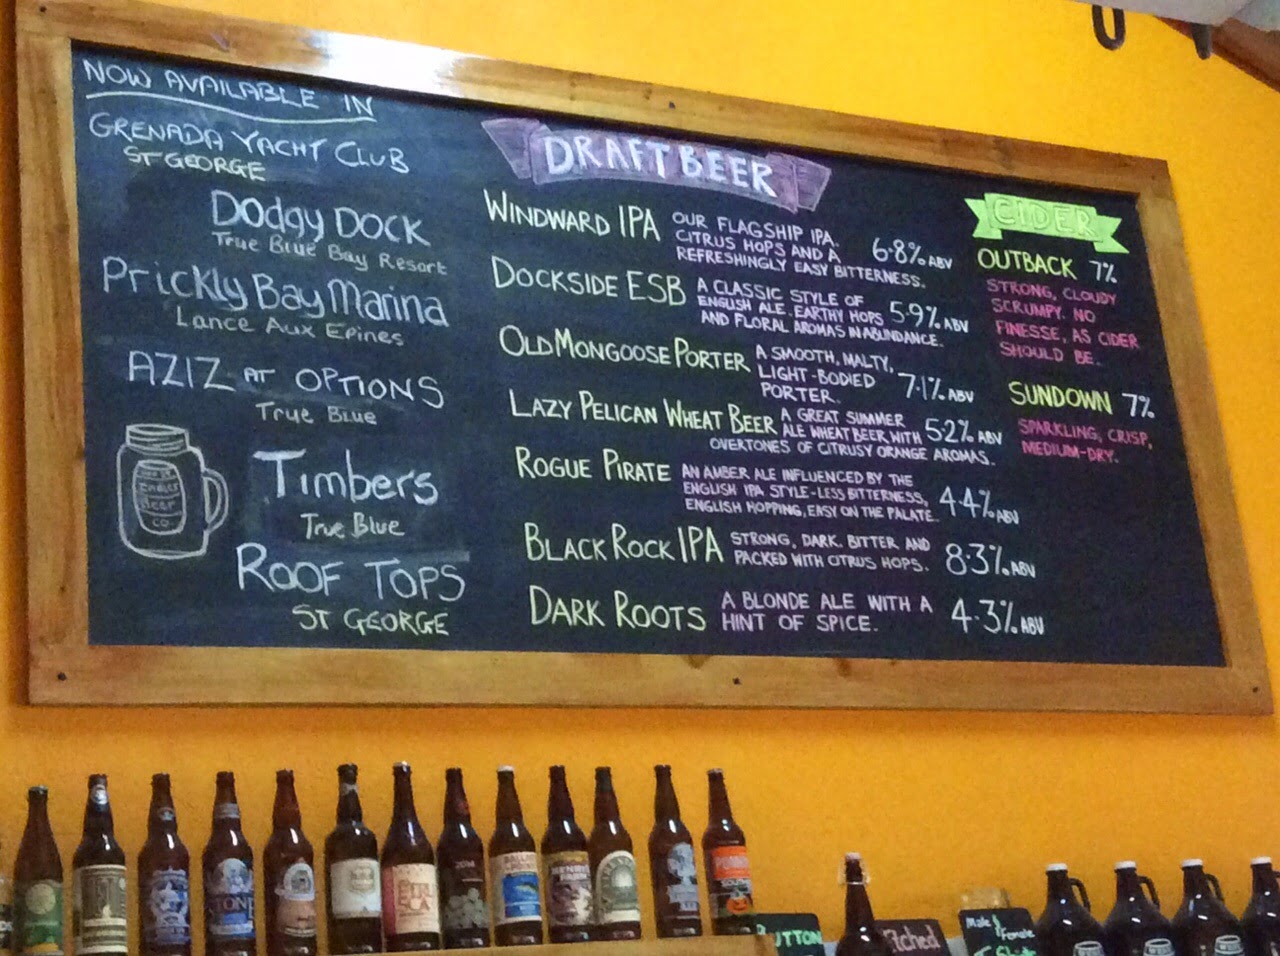 NOW AVAILABLE IN
GRENADA YACHT CLUB
ST GEORGE
Dodgy Dock
True Blue Bay Resort
Prickly Bay Marina
Lance Aux Epines
AZIZ AT OPTIONS
True Blue
Timbers
True Blue
ROOF TOPS
ST GEORGE
Beer
CO
DRAFT BEER
WINDWARD IPA
OUR FLAGSHIP IPA.
CITRUS HOPS AND A
REFRESHINGLY EASY BITTERNESS.
6.8% ABV
DOCKSIDE ESB
A CLASSIC STYLE OF
ENGLISH ALE. EARTHY HOPS
AND FLORAL AROMAS IN ABUNDANCE.
5.9% ABV
OLD MONGOOSE PORTER
A SMOOTH, MALTY,
LIGHT-BODIED
PORTER.
7.1% ABV
LAZY PELICAN WHEAT BEER
A GREAT SUMMER
ALE WHEAT BEER WITH
OVERTONES OF CITRUSY ORANGE AROMAS.
5.2% ABV
ROGUE PIRATE
AN AMBER ALE INFLUENCED BY THE
ENGLISH IPA STYLE-LESS BITTERNESS,
ENGLISH HOPPING, EASY ON THE PALATE.
4.4% ABV
BLACK ROCK IPA
STRONG, DARK, BITTER AND
PACKED WITH CITRUS HOPS.
8.3% ABV
DARK ROOTS
A BLONDE ALE WITH A
HINT OF SPICE.
4.3% ABV
CIDER
OUTBACK 7%
STRONG, CLOUDY
SCRUMPY. NO
FINESSE, AS CIDER
SHOULD BE.
SUNDOWN 7%
SPARKLING, CRISP,
MEDIUM-DRY.
STONE
2014
BUTTON
Male &
Female